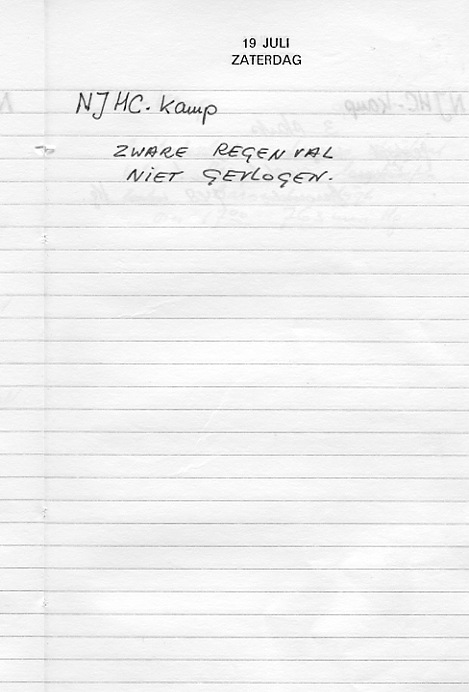 19 JULI
ZATERDAG
NJHC-Kamp
ZWARE REGENVAL
NIET GEVLOGEN.